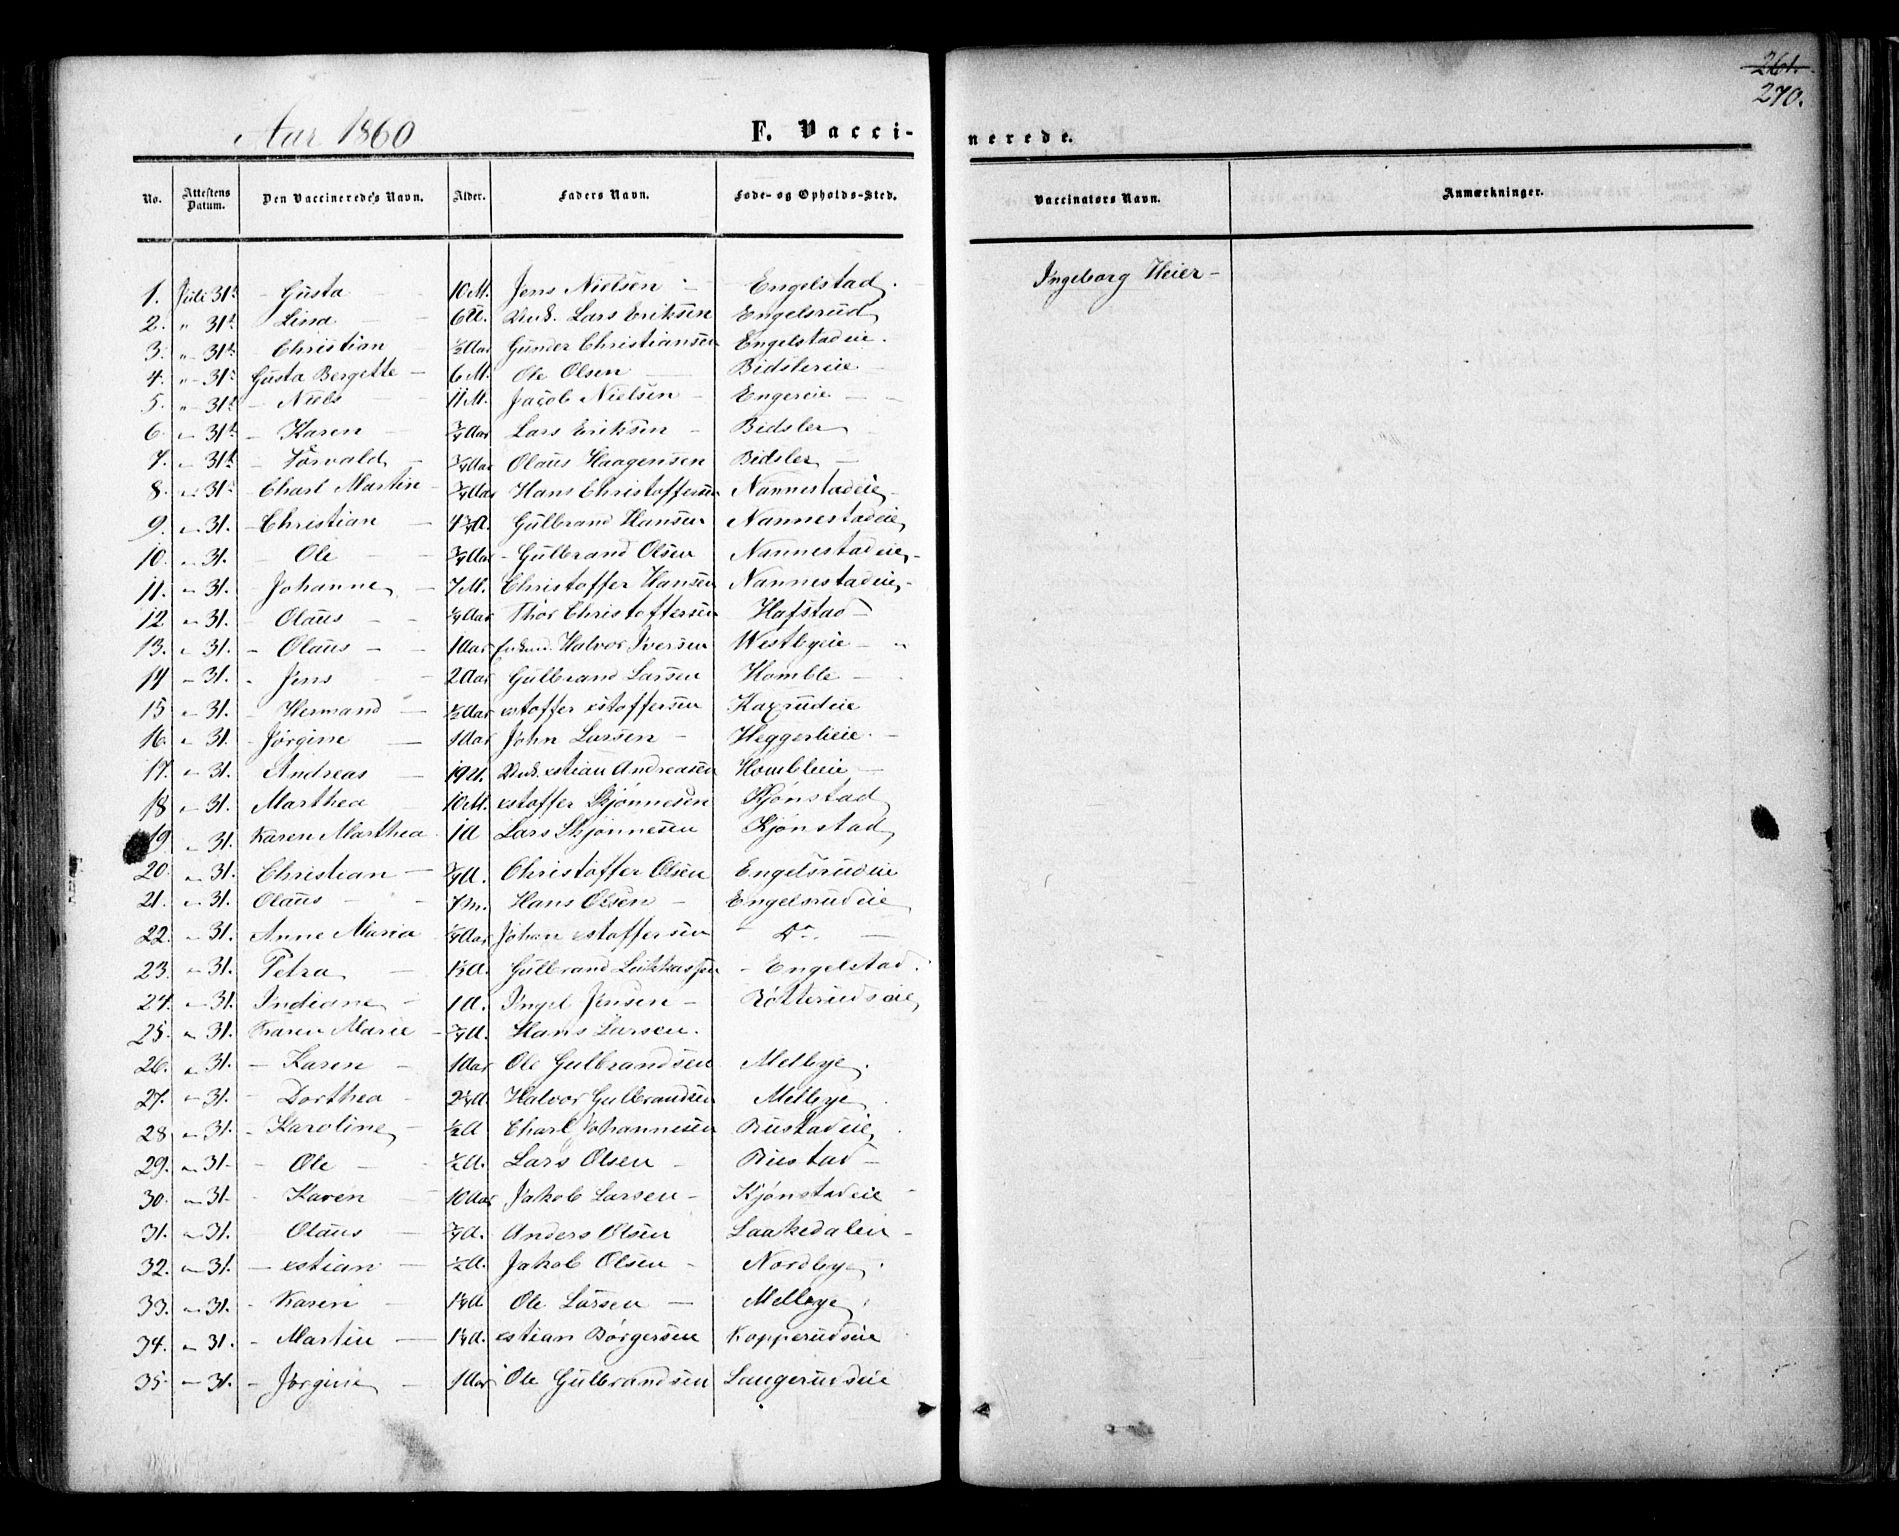 261.
270.
Aar 1860 F. Vacci- nerede.
No. Attestens Datum. Den Vaccineredes Navn. Alder. Faders Navn. Føde- og Opholds-Sted. Vaccinatørs Navn. Anmærkninger.
1. Juli 31t - Gusta 10 M. Jens Nielsen - Engelstad. Ingeborg Heier -
2. " 31t Lina - 6 U. Lars Eriksen Engelsrud
3. " 31t Christian ½ Aar Gunder Christiansen Engelstadeie.
4. " 31t Gusta Bergette - 6 M. Ole Olsen - Bidslereie
5. " 31t - Niels 11 M. Jacob Nielsen - Engereie -
6. " 31t - Karen ¾ Aar Lars Eriksen - Bidsler
7. " 31t - Torvald - ¾ Aar Olaus Haagensen Bidsler -
8. " 31t - Charl Martin - ¾ Aar Hans Christoffersen Nannestadeie -
9. " 31. - Christian - 4¾ A. Gulbrand Hansen Nannestadeie
10. " 31. - Ole - ¾ Aar - Gulbrand Olsen Nannestadeie -
11. " 31. - Johanne - 7 M. Christoffer Hansen Nannestadeie -
12 " 31. - Olaus - ¾ Aar Thor Christoffersen Hafstad -
13. " 31. - Olaus - 1 Aar Halvor Iversen Westbyeie -
14 " 31. - Jens 2 Aar Gulbrand Larsen Homble -
15 " 31. - Hermand - ½ Aar xstoffer xstoffersen Kaxrudeie
16. " 31. - Jørgine - 1 Aar John Larsen - Heggerlieie -
17. " 31. Andreas - 19 U. xstian Andreasen Hombleie -
18 " 31. Marthea 10 M. xstoffer Skjønnesen Kjønstad
19. " 31. Karen Marthea 1 A Lars Skjønnesen Kjønstad
20. " 31. Christian - ¾ A. Christoffer Olsen Engelsrudeie
21. " 31. Olaus - 7 m. Hans Olsen - Engelsrudeie
22. " 31. Anne Maria ¾ Aar Johan xstoffersen Do. -
23. " 31. Petra - 1½ A. Gulbrand - Engelstad.
24. " 31. Indiane - 1 A. Ingel Jensen - Rótterudseie
25. " 31. Karen Marie - ¾ A. Hans Larsen.
26. " 31. - Karen - 1 Aar Ole Gulbrandsen Melbye.
27. " 31. - Dorthea - 2¾ A. Halvor Gulbrandsen Melbye.
28 " 31. - Karoline - ½ A Charl Johannesen Rustadeie.
29. " 31 - Ole - ½ A. Lars Olsen - Rustad -
30. " 31 - Karen - 10 Aar Jakob Larsen - Kjønstadeie -
31. " 31. - Olaus ¾ A. Anders Olsen Laakedalen -
32. " 31. - xstian - ½ A. Jakob Olsen - Nordbye.
33. " 31. - Karen - 1¼ A Ole Larsen - Melbye.
34. " 31. - Martin - 1¼ A. xstian Børgersen Kopperudseie
35. " 31. - Jørgine - 1 Aar Ole Gulbrandsen Langerudseie